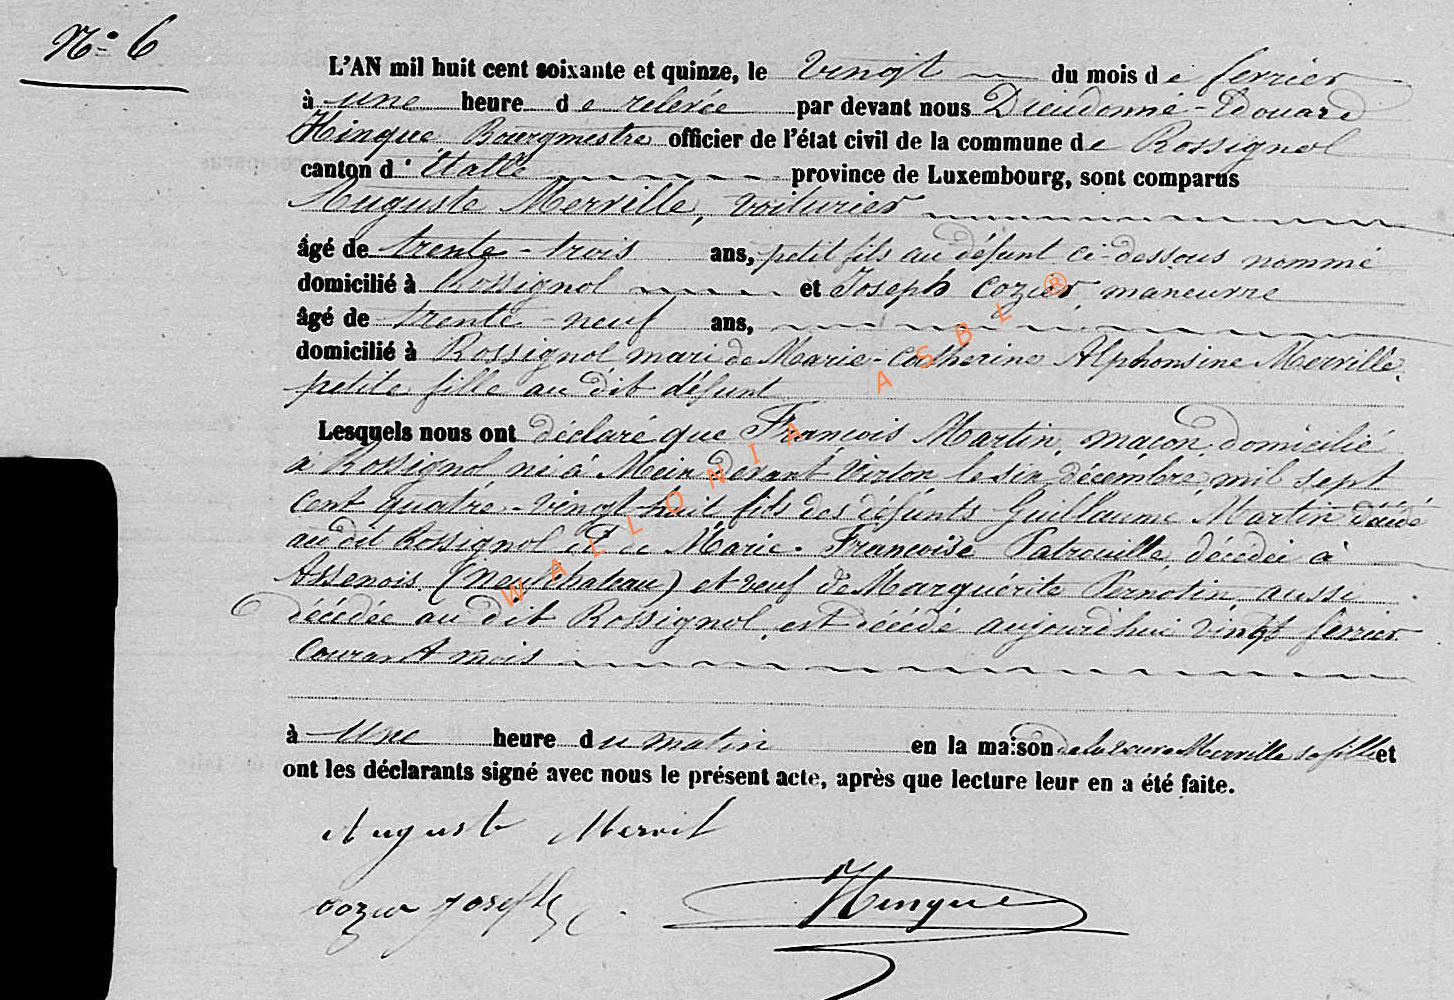 N° 6
L'AN mil huit cent soixante et quinze, le vingt du mois de ferrier
à une heure de relevée par devant nous Dieudonné-Edouard
Hinque Bourgmestre officier de l'état civil de la commune de Rossignol
canton d'Étalle province de Luxembourg, sont comparus
Auguste Merville, voiturier
âgé de trente-trois ans, petit fils au défunt ci-dessous nommé
domicilié à Rossignol et Joseph Cozier, maneuvre
âgé de trente-neuf ans,
domicilié à Rossignol mari de Marie-Catherine Alphonsine Merville,
petite fille au dit défunt
Lesquels nous ont déclaré que François Martin, maçon, domicilié
à Rossignol né à Meix devant Virton le six décembre mil sept
cent quatre-vingt huit fils des défunts Guillaume Martin décédé
au dit Rossignol et de Marie-Françoise Patrouille, décédée à
Assenois (Neufchateau) et veuf de Marguérite Pernotin, aussi
décédée au dit Rossignol, est décédé aujourdhui vingt ferrier
courant mois
à une heure du matin en la maison de la veuve Merville sa fille et
ont les déclarants signé avec nous le présent acte, après que lecture leur en a été faite.
Auguste Mervil
Cozier Joseph
Hinque
WALLONIA ASBL ®